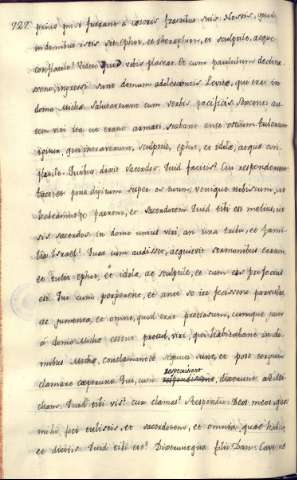 727.
prius prius fuerant à ceteris fratribus suis: Nostis, quod
in domibus istis sit Ephod, et Theraphim, et sculptile, atque
conflatile? Videte quid vobis placeat. Et cum paululum declina-
ssent, ingressi sunt domum adolescentis Levitæ, qui erat in
domo Micha: salutaveruntque eum verbis pacificis. Sexcenti au-
tem viri ita ut erant armati, stabant ante ostium. At
illi, qui ingressi erant, sculptile, Ephod, et idola, atque con-
flatile. Quibus dixit Sacerdos: Quid facitis? Cui responderunt:
Tace, et pone digitum super os tuum, venique nobiscum, ut
habeamus te patrem, et Sacerdotem. Quid tibi est melius, ut
sis sacerdos in domo unius viri, an in una tribu, et fami-
lia Israel? Quod cum audisset, acquievit sermonibus eorum,
et tulit Ephod, et idola, ac sculptile, et cum eis profectus
est. Qui cum pergerent, et ante se ire fecissent parvulos,
ac jumenta, et omne, quod erat pretiosum, cumque jam
à domo Micha essent procul, viri, qui habitabant in do-
mibus Micha, conclamantes secuti sunt, et post tergum
clamare cœperunt. Qui, cum respexissent, dixerunt ad Mi-
cham: Quid tibi vis? cur clamas? Respondit: Deos meos, quos
mihi feci tulistis, et sacerdotem, et omnia, quæ habeo,
et dicitis: Quid tibi est? Dixeruntque filii Dan: Cave, ne